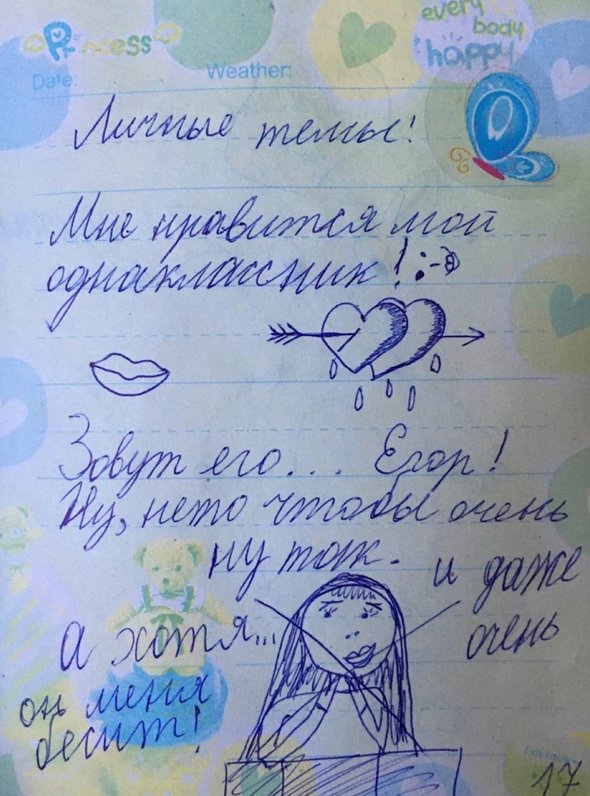 every
body
happy
Princess
Date:
Weather:
Личные темы!
Мне нравится мой
однаклассник!
Зовут его... Егор!
Ну, нето чтобы очень
ну так. и даже
очень
а хотя...
он меня
бесит!
17